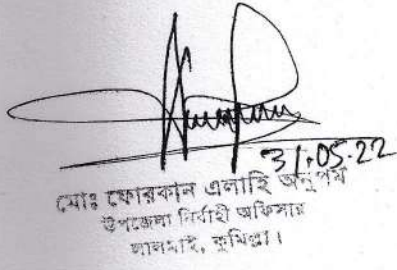 31.05.22
মোঃ ফোরকান এলাহি অনুপম
উপজেলা নির্বাহী অফিসার
লালমাই, কুমিল্লা।